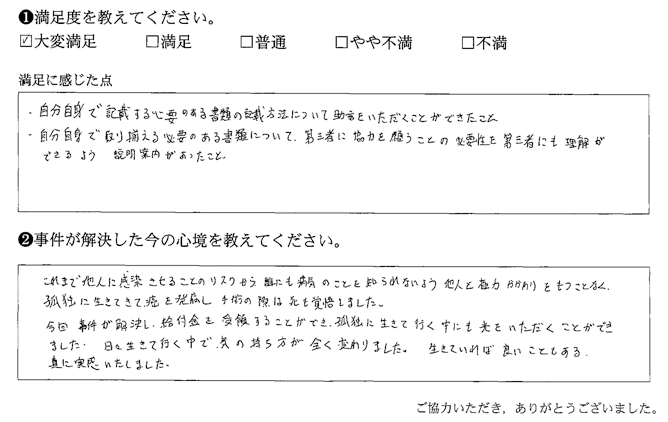 ❶満足度を教えてください。
☑大変満足 □満足 □普通 □やや不満 □不満
満足に感じた点
・自分自身で記載する必要のある書類の記載方法について助言をいただくことができたこと
・自分自身で取り揃える必要のある書類について、第三者に協力を願うことの必要性を第三者にも理解が
できるよう 説明案内があったこと
❷事件が解決した今の心境を教えてください。
これまで他人に感染させることのリスクから誰にも病気のことを知られないよう他人と極力かかわりをもつことなく、
孤独に生きてきて癌を発病し手術の際は死も覚悟しました。
今回事件が解決し、給付金を受領することができ、孤独に生きて行く中にも光をいただくことができ
ました。日々生きて行く中で、気の持ち方が全く変わりました。生きていれば良いこともある、
真に実感いたしました。
ご協力いただき，ありがとうございました。